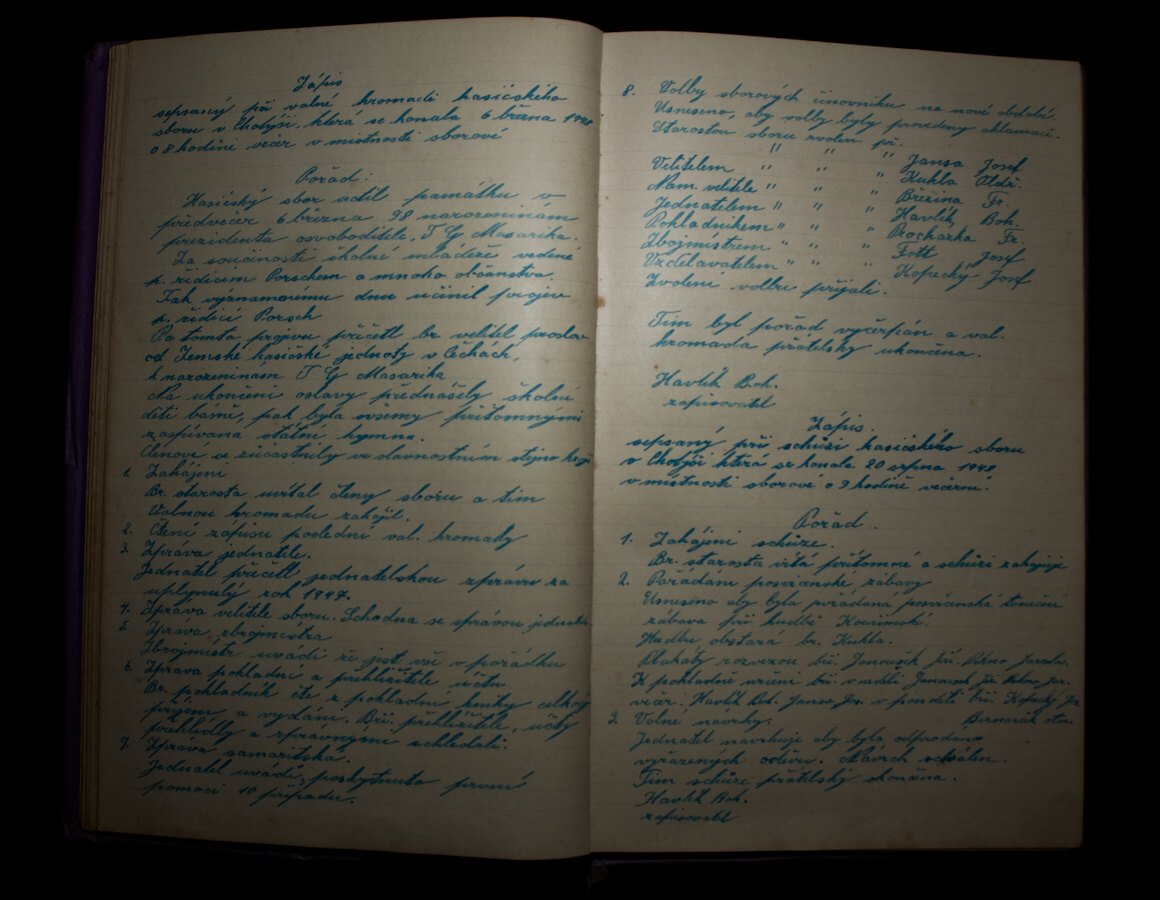 Zápis
sepsaný při valné hromadě hasičského
sboru v Chotýši, která se konala 6 března 1948
o 8 hodině večer v místnosti sborové
Pořad:
Hasičský sbor uctil památku v
předvečer 6 března 98 narozeninám
prezidenta osvoboditele, T G Masarika.
Za součinosti školní mládeže vedené
p. řídícím Porschem a mnoho občanstva.
Tak významnému dnu učinil projev
p. řídící Porsch
Po tomto projevu přečetl br. velitel proslov
od Zemské hasičské jednoty v Čechách,
k narozeninám T G Masarika
Na ukončení oslavy přednášely školní
děti básně, pak byla všemy přítomnými
zaspívána státní hymna.
Členové se zúčastnily ve slavnostním stejno kroji
1. Zahájení
Br. starosta uvítal členy sboru a tím
Valnou hromadu zahájil.
2. Čtení zápisu poslední val. hromady
3. Zpráva jednatele.
Jednatel přečetl jednatelskou zprávu za
uplynulý rok 1947.
4. Zpráva velitele sboru. Schodna se správou jednatele
5. Zpráva zbrojmistra
Zbrojmistr uvádí že jest vše v pořádku
6. Zpráva pokladní a přehlížitele účtu
Br. pokladník čte z pokladní knihy celkový
příjem a vydání. Bří. přehlížitelé, účty
přehlédly a zpravnými schledali.
7. Zpráva samaritská.
Jednatel uvádí, poskytnuta první
pomoci 10 případu.
8. Volby sborových činovníku na nové období.
Usneseno, aby volby byly provedeny aklamací.
Starostou sboru zvolen př.
" " " Jansa Josef
Velitelem " " " Kuhla Oldř.
Nám. velitele " " " Březina Fr.
Jednatelem " " " Havlík Boh.
Pokladníkem " " " Procházka Fr.
Zbojmistrem " " " Fott Josef
Vzdělavatelem " " " Kopecký Josf
Zvolení volbu přijali.
Tím byl pořad vyčerpán a val.
hromada přátelsky ukončena.
Havlík Boh.
zapisovatel
Zápis.
sepsaný při schůzi hasičského sboru
v Chotýši která se konala 20 srpna 1948
v místnosti sborové o 9 hodině večerní.
Pořad.
1. Zahájení schůze.
Br. starosta vítá přítomné a schůzi zahajuje
2. Pořádání posvícenské zábavy
Usneseno aby byla pořádaná posvícenská taneční
zábava při hudbě Kouřimské.
Hudbu obstará br. Kuhla.
Plakáty rozvezou bří. Janoušek Jří.
K pokladně určeni bří. v neděli Janoušek Jř.
večer. Havlík Boh. Jansa Jos. v pondělí bří. Kopecký Jo
3. Volné návrhy.
Jednatel navrhuje aby byla odprodáno
vyřazených oděvu. Návrh schválen.
Tím schůze přátelský skončena.
Havlík Boh.
zapisovatel